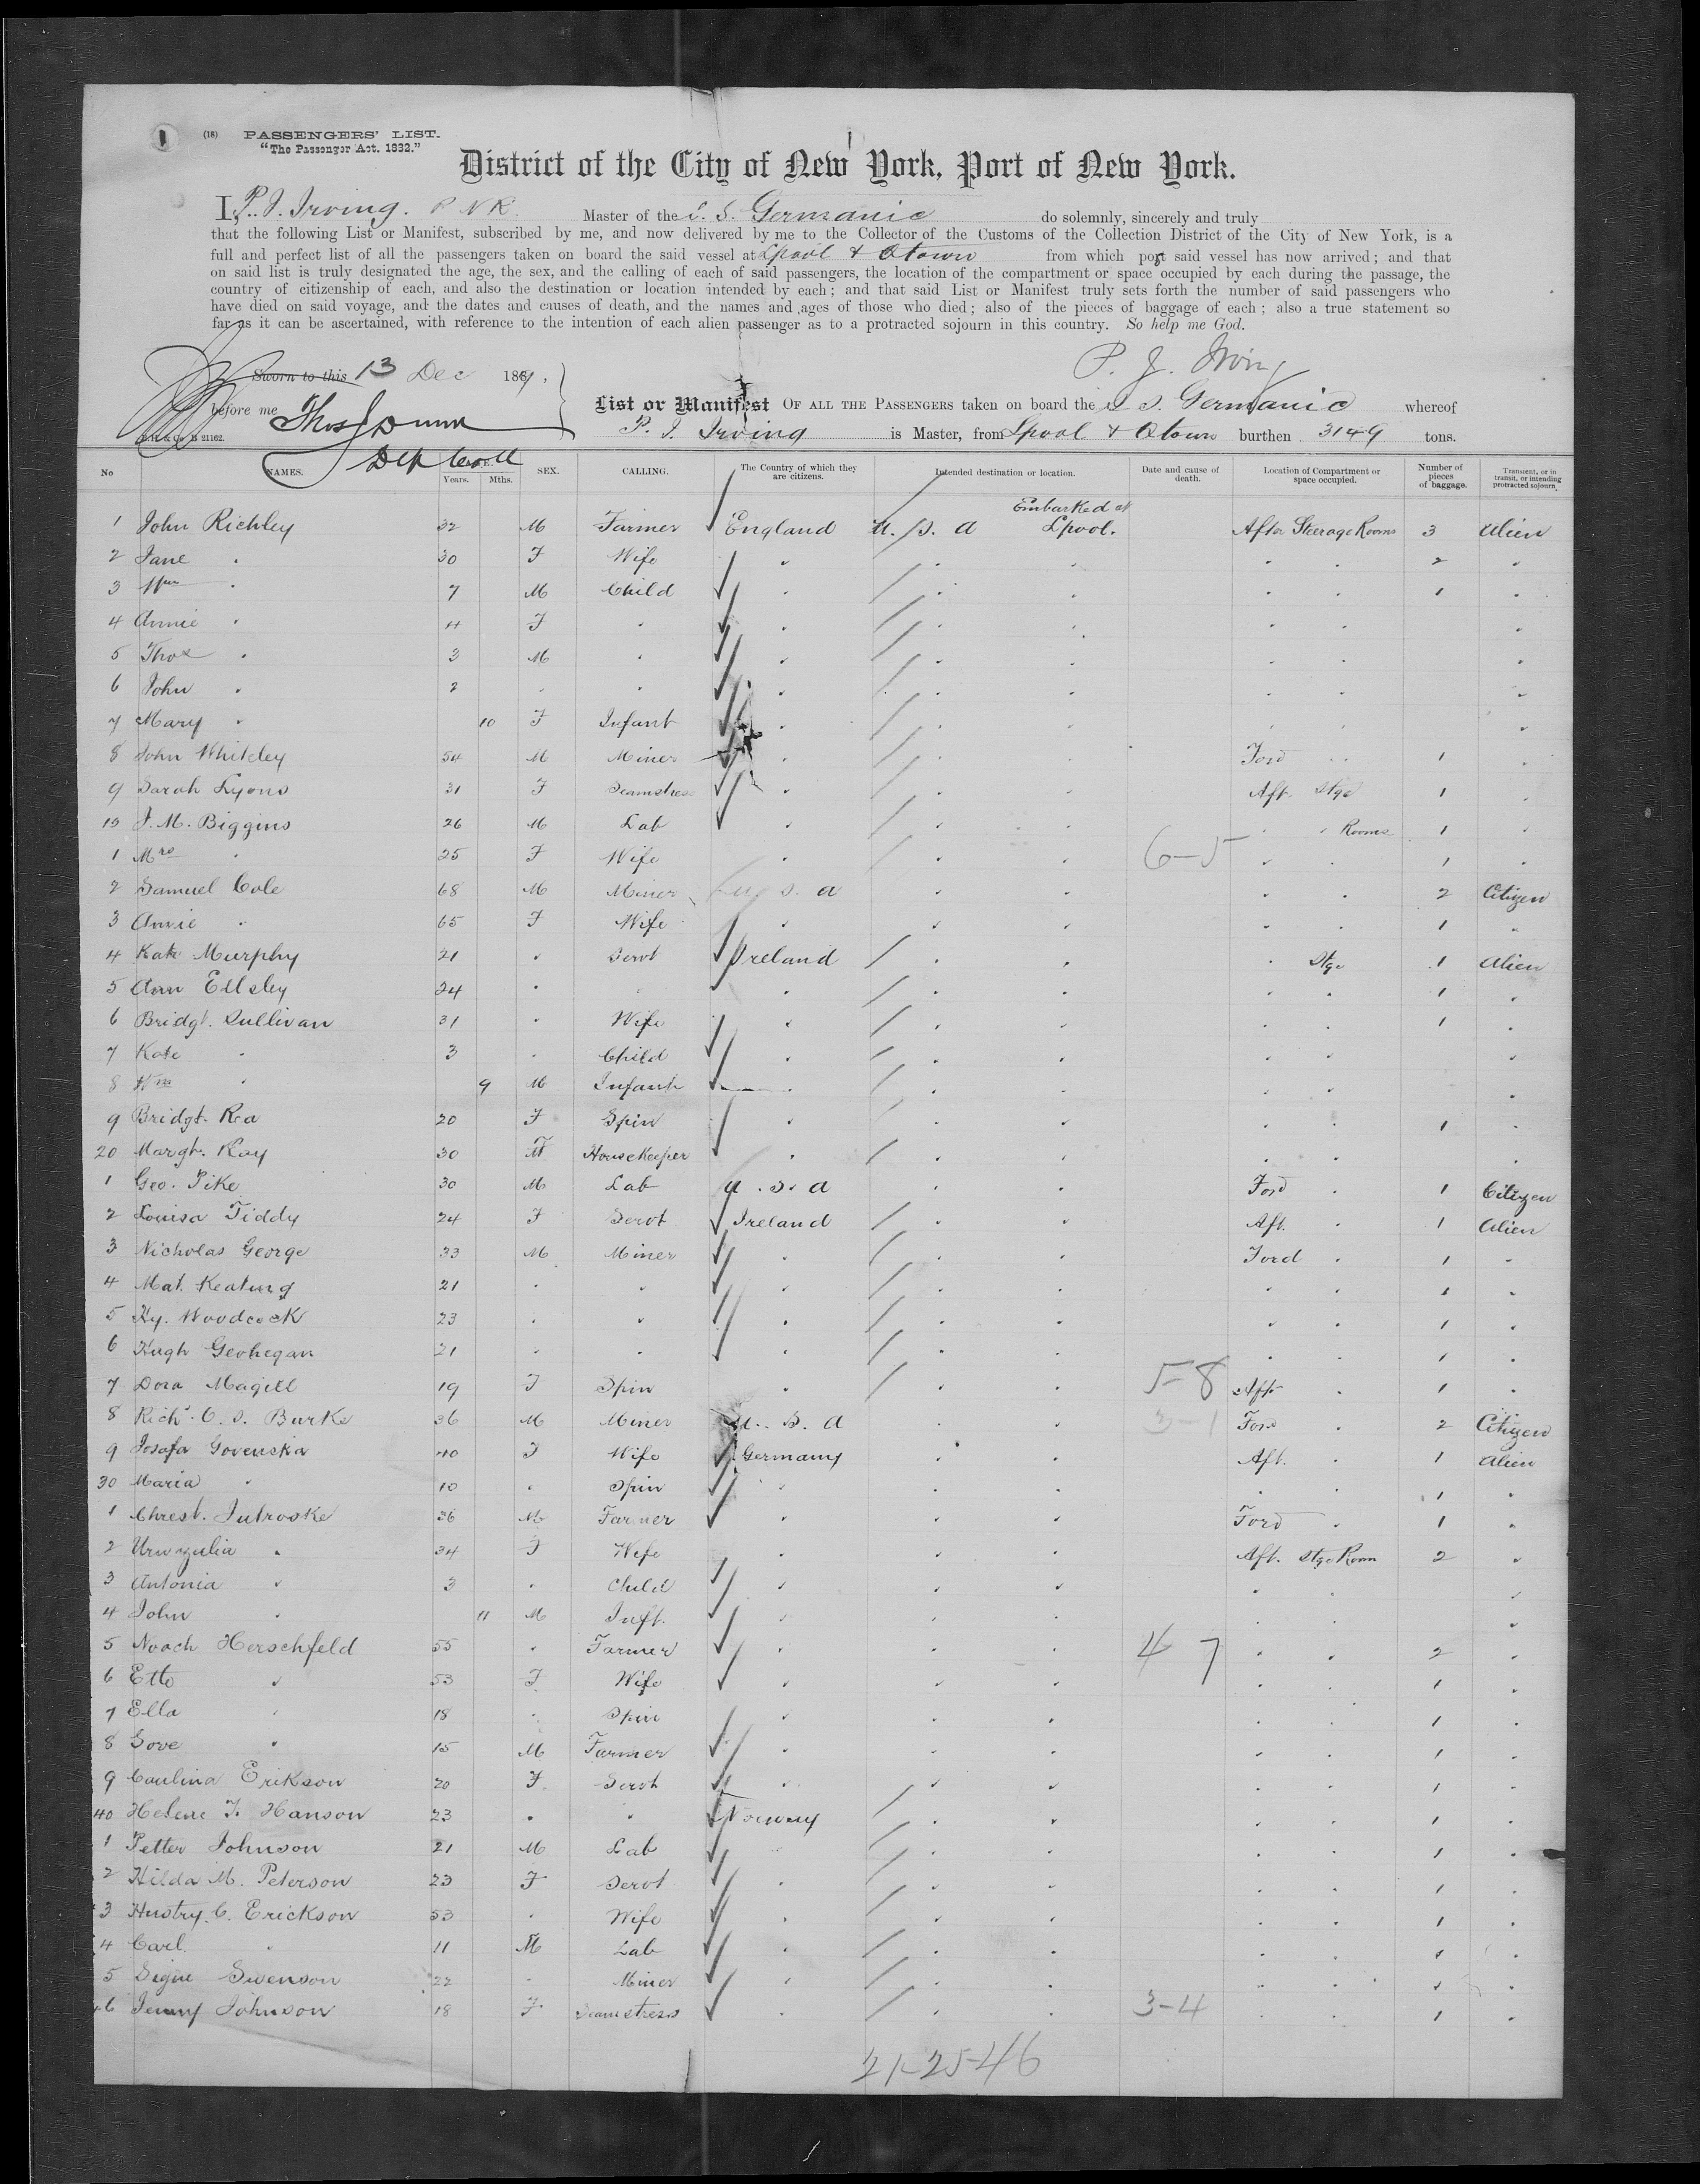 1
(18) PASSENGERS' LIST.
"The Passenger Act, 1882."
District of the City of New York, Port of New York.
I, P. J. Irving. R N R. Master of the S. S. Germanic do solemnly, sincerely and truly
that the following List or Manifest, subscribed by me, and now delivered by me to the Collector of the Customs of the Collection District of the City of New York, is a
full and perfect list of all the passengers taken on board the said vessel at Lpool & Qtown from which port said vessel has now arrived; and that
on said list is truly designated the age, the sex, and the calling of each of said passengers, the location of the compartment or space occupied by each during the passage, the
country of citizenship of each, and also the destination or location intended by each; and that said List or Manifest truly sets forth the number of said passengers who
have died on said voyage, and the dates and causes of death, and the names and ages of those who died; also of the pieces of baggage of each; also a true statement so
far as it can be ascertained, with reference to the intention of each alien passenger as to a protracted sojourn in this country. So help me God.
P. J. Irving
Sworn to this 13 Dec 188
before me Thos J Dunn
Dep Coll
List or Manifest OF ALL THE PASSENGERS taken on board the S. S. Germanic whereof
P. J. Irving is Master, from Lpool & Qtown burthen 3149 tons.
No NAMES. Years. Mths. SEX. CALLING. The Country of which they are citizens. Intended destination or location. Date and cause of death. Location of Compartment or space occupied. Number of pieces of baggage. Transient, or in transit, or intending protracted sojourn.
Embarked at
1 John Richley 32 M Farmer England U. S. A Lpool. After Steerage Rooms 3 Alien
2 Jane " 30 F Wife " " " " " 2 "
3 Wm " 7 M Child " " " " " 1 "
4 Annie " 4 F " " " " " " "
5 Thos " 3 M " " " " " " "
6 John " 2 " " " " " " " "
7 Mary " 10 F Infant " " " " " "
8 John Whiteley 54 M Miner " " " Ford " " 1 "
9 Sarah Lyons 31 F Seamstress " " " Aft. Stge 1 "
10 J. M. Biggins 26 M Lab " " " " " Rooms 1 "
1 Mrs " 25 F Wife " " " 6-5 " " 1 "
2 Samuel Cole 68 M Miner U. S. A " " " " 2 Citizen
3 Annie " 65 F Wife " " " " " 1 "
4 Kate Murphy 21 " Servt Ireland " " " Stge 1 Alien
5 Ann Ellsley 24 " " " " " " " 1 "
6 Bridgt. Sullivan 31 " Wife " " " " " 1 "
7 Kate " 3 " Child " " " " " "
8 Wm " 9 M Infant " " " " " "
9 Bridgt. Rea 20 F Spin " " " " " 1 "
20 Margt. Kay 30 F Housekeeper " " " " " "
1 Geo. Pike 30 M Lab U. S. A " " Ford " 1 Citizen
2 Louisa Tiddy 24 F Servt Ireland " " Aft. " 1 Alien
3 Nicholas George 33 M Miner " " " Ford " 1 "
4 Mat. Keating 21 " " " " " " " 1 "
5 Hy. Woodcock 23 " " " " " " " 1 "
6 Hugh Geohegan 21 " " " " " " " 1 "
7 Dora Magill 19 F Spin " " " 5-8 Aft " 1 "
8 Richd. C. S. Burke 36 M Miner U. S. A " " 3-1 Ford " 2 Citizen
9 Josafa Govenska 40 F Wife Germany " " Aft. " 1 Alien
30 Maria " 10 " Spin " " " " " 1 "
1 Christ. Jutroske 36 M Farmer " " " Ford " 1 "
2 " 34 F Wife " " " Aft. Stge Room 2 "
3 Antonia " 3 " Child " " " " " "
4 John " 11 M Inft. " " " " " "
5 Noach Herschfeld 55 " Farmer " " " 4 7 " " 2 "
6 Ette " 53 F Wife " " " " " 1 "
7 Ella " 18 " Spin " " " " " 1 "
8 Gove " 15 M Farmer " " " " " 1 "
9 Caulina Erikson 20 F Servt " " " " " 1 "
40 Helene F. Hanson 23 " " Norway " " " " 1 "
1 Petter Johnson 21 M Lab " " " " " 1 "
2 Hilda M. Peterson 23 F Servt " " " " " 1 "
3 Hustry. C. Erickson 53 " Wife " " " " " 1 "
4 Carl " 11 M Lab " " " " " 1 "
5 Signe Swenson 22 " Miner " " " " " 1 "
46 Jenny Johnson 18 F Seamstress " " " 3-4 " " 1 "
21-25-46